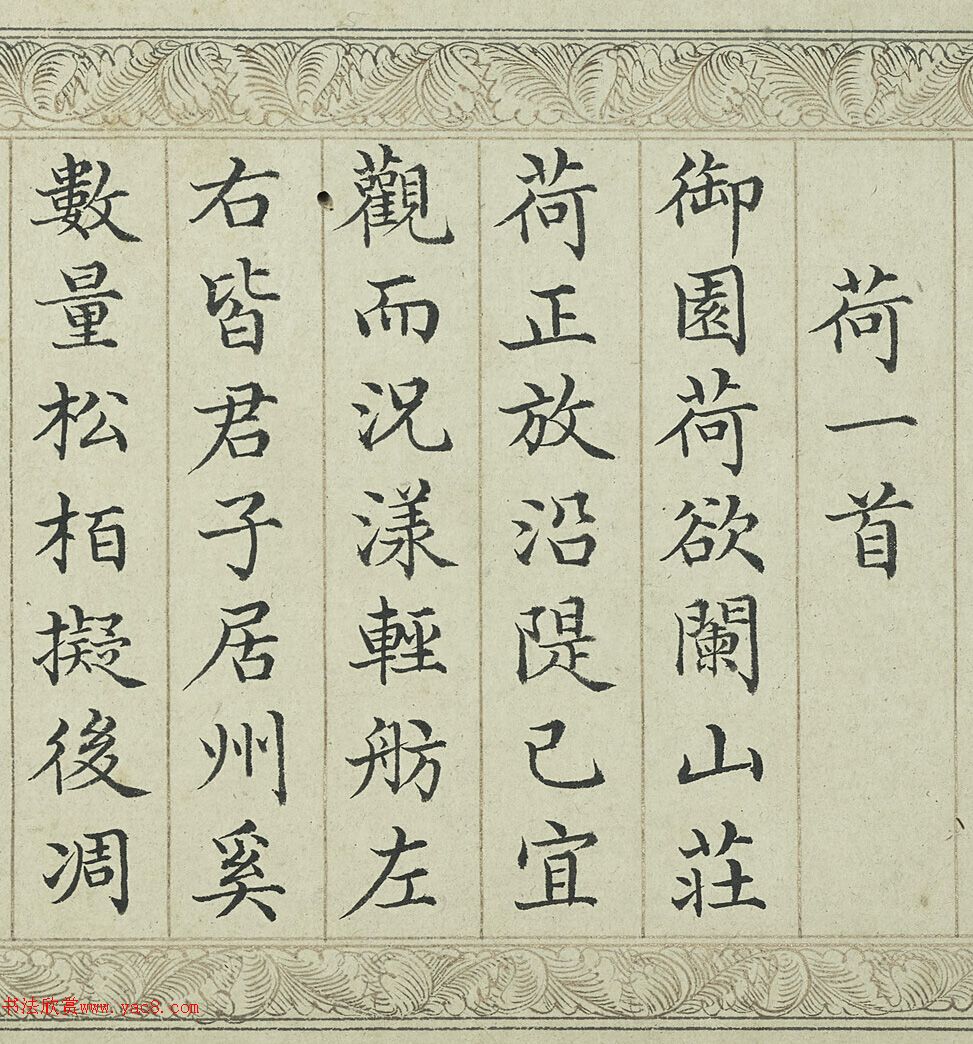 荷一首
御園荷欲闌山莊
荷正放沿隄已宜
觀而況漾輕舫左
右皆君子居州奚
數量松栢擬後凋
书法欣赏www.yac8.com